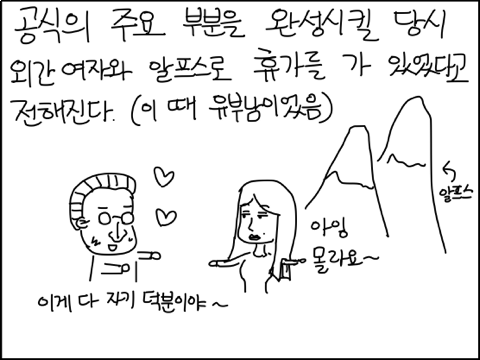 공식의 주요 부분을 완성시킬 당시
외간여자와 알프스로 휴가를 가 있었다고
전해진다. (이 때 유부남이었음)
←알프스
아잉
몰라요~
이게 다 자기 덕분이야~